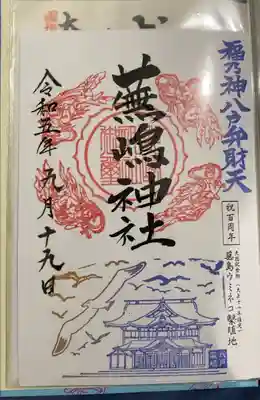 福乃神八戸弁財天
祝百周年
蕪島ウミネコ繁殖地
蕪嶋神社
令和五年九月十九日